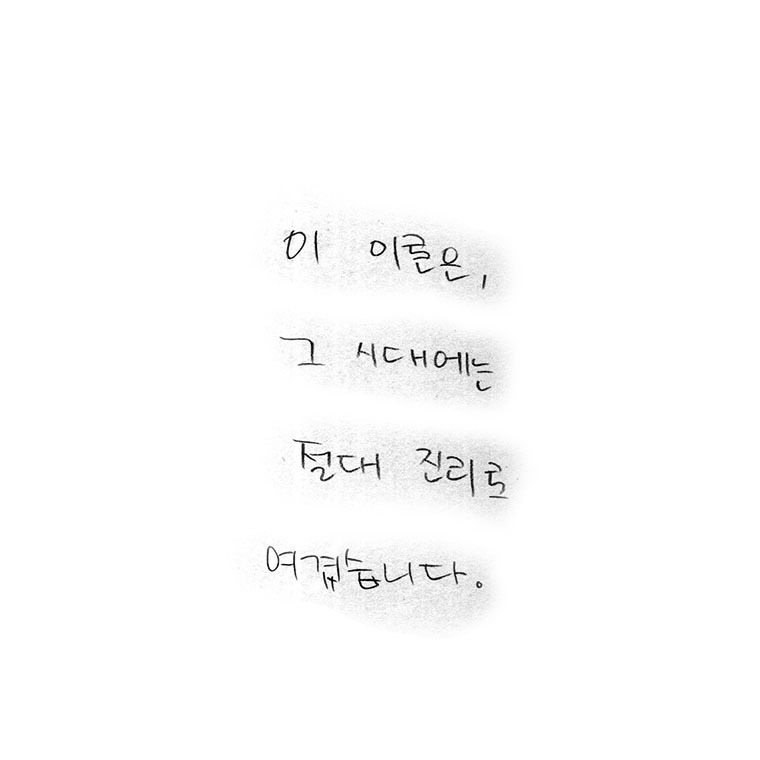 이 이론은,
그 시대에는
절대 진리로
여겹습니다.